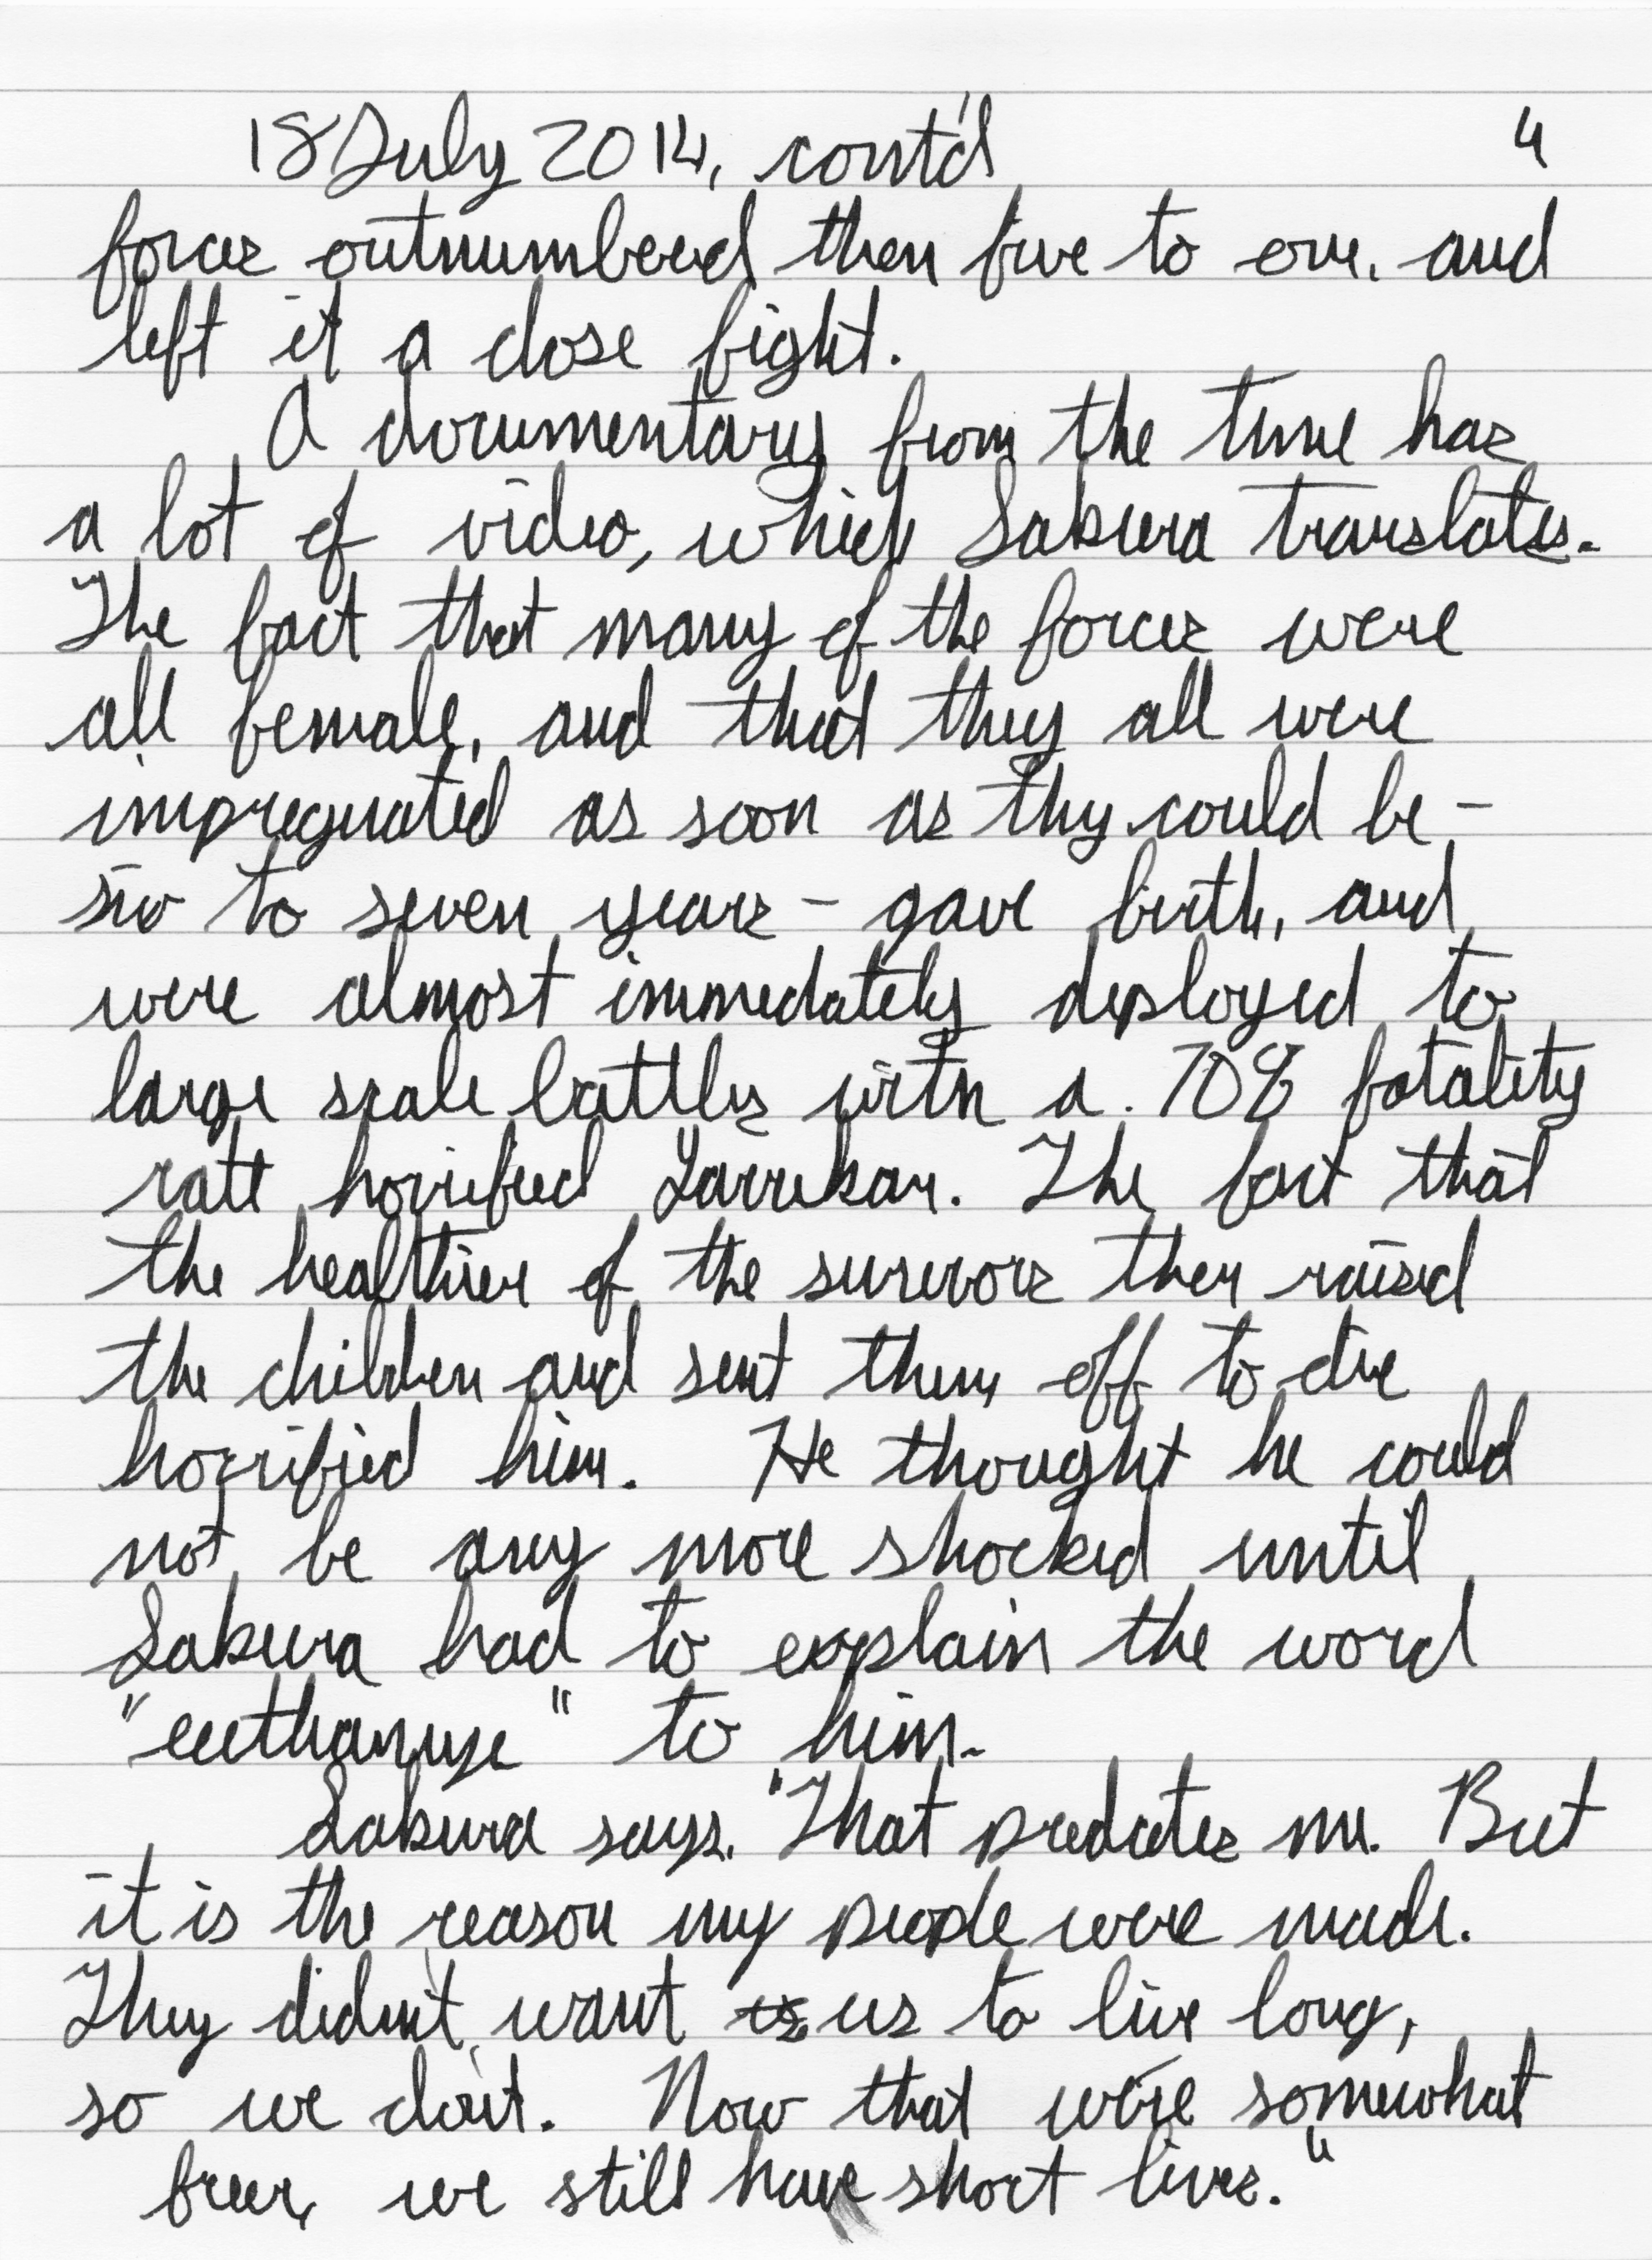 18 July 2014, cont'd 4
forces outnumbered them five to one, and
left it a close fight.
A documentary from the time has
a lot of video, which Sakura translates.
The fact that many of the forces were
all female, and that they all were
impregnated as soon as they could be -
six to seven years - gave birth, and
were almost immediately deployed to
large scale battles with a 70% fatality
rate horrified Yarrikar. The fact that
the healthier of the survivors then raised
the children and sent them off to die
horrified him. He thought he could
not be any more shocked until
Sakura had to explain the word
"euthanize" to him.
Sakura says, "That predates me. But
it is the reason my people were made.
They didn't want us to live long,
so we don't. Now that we're somewhat
freer, we still have short lives."